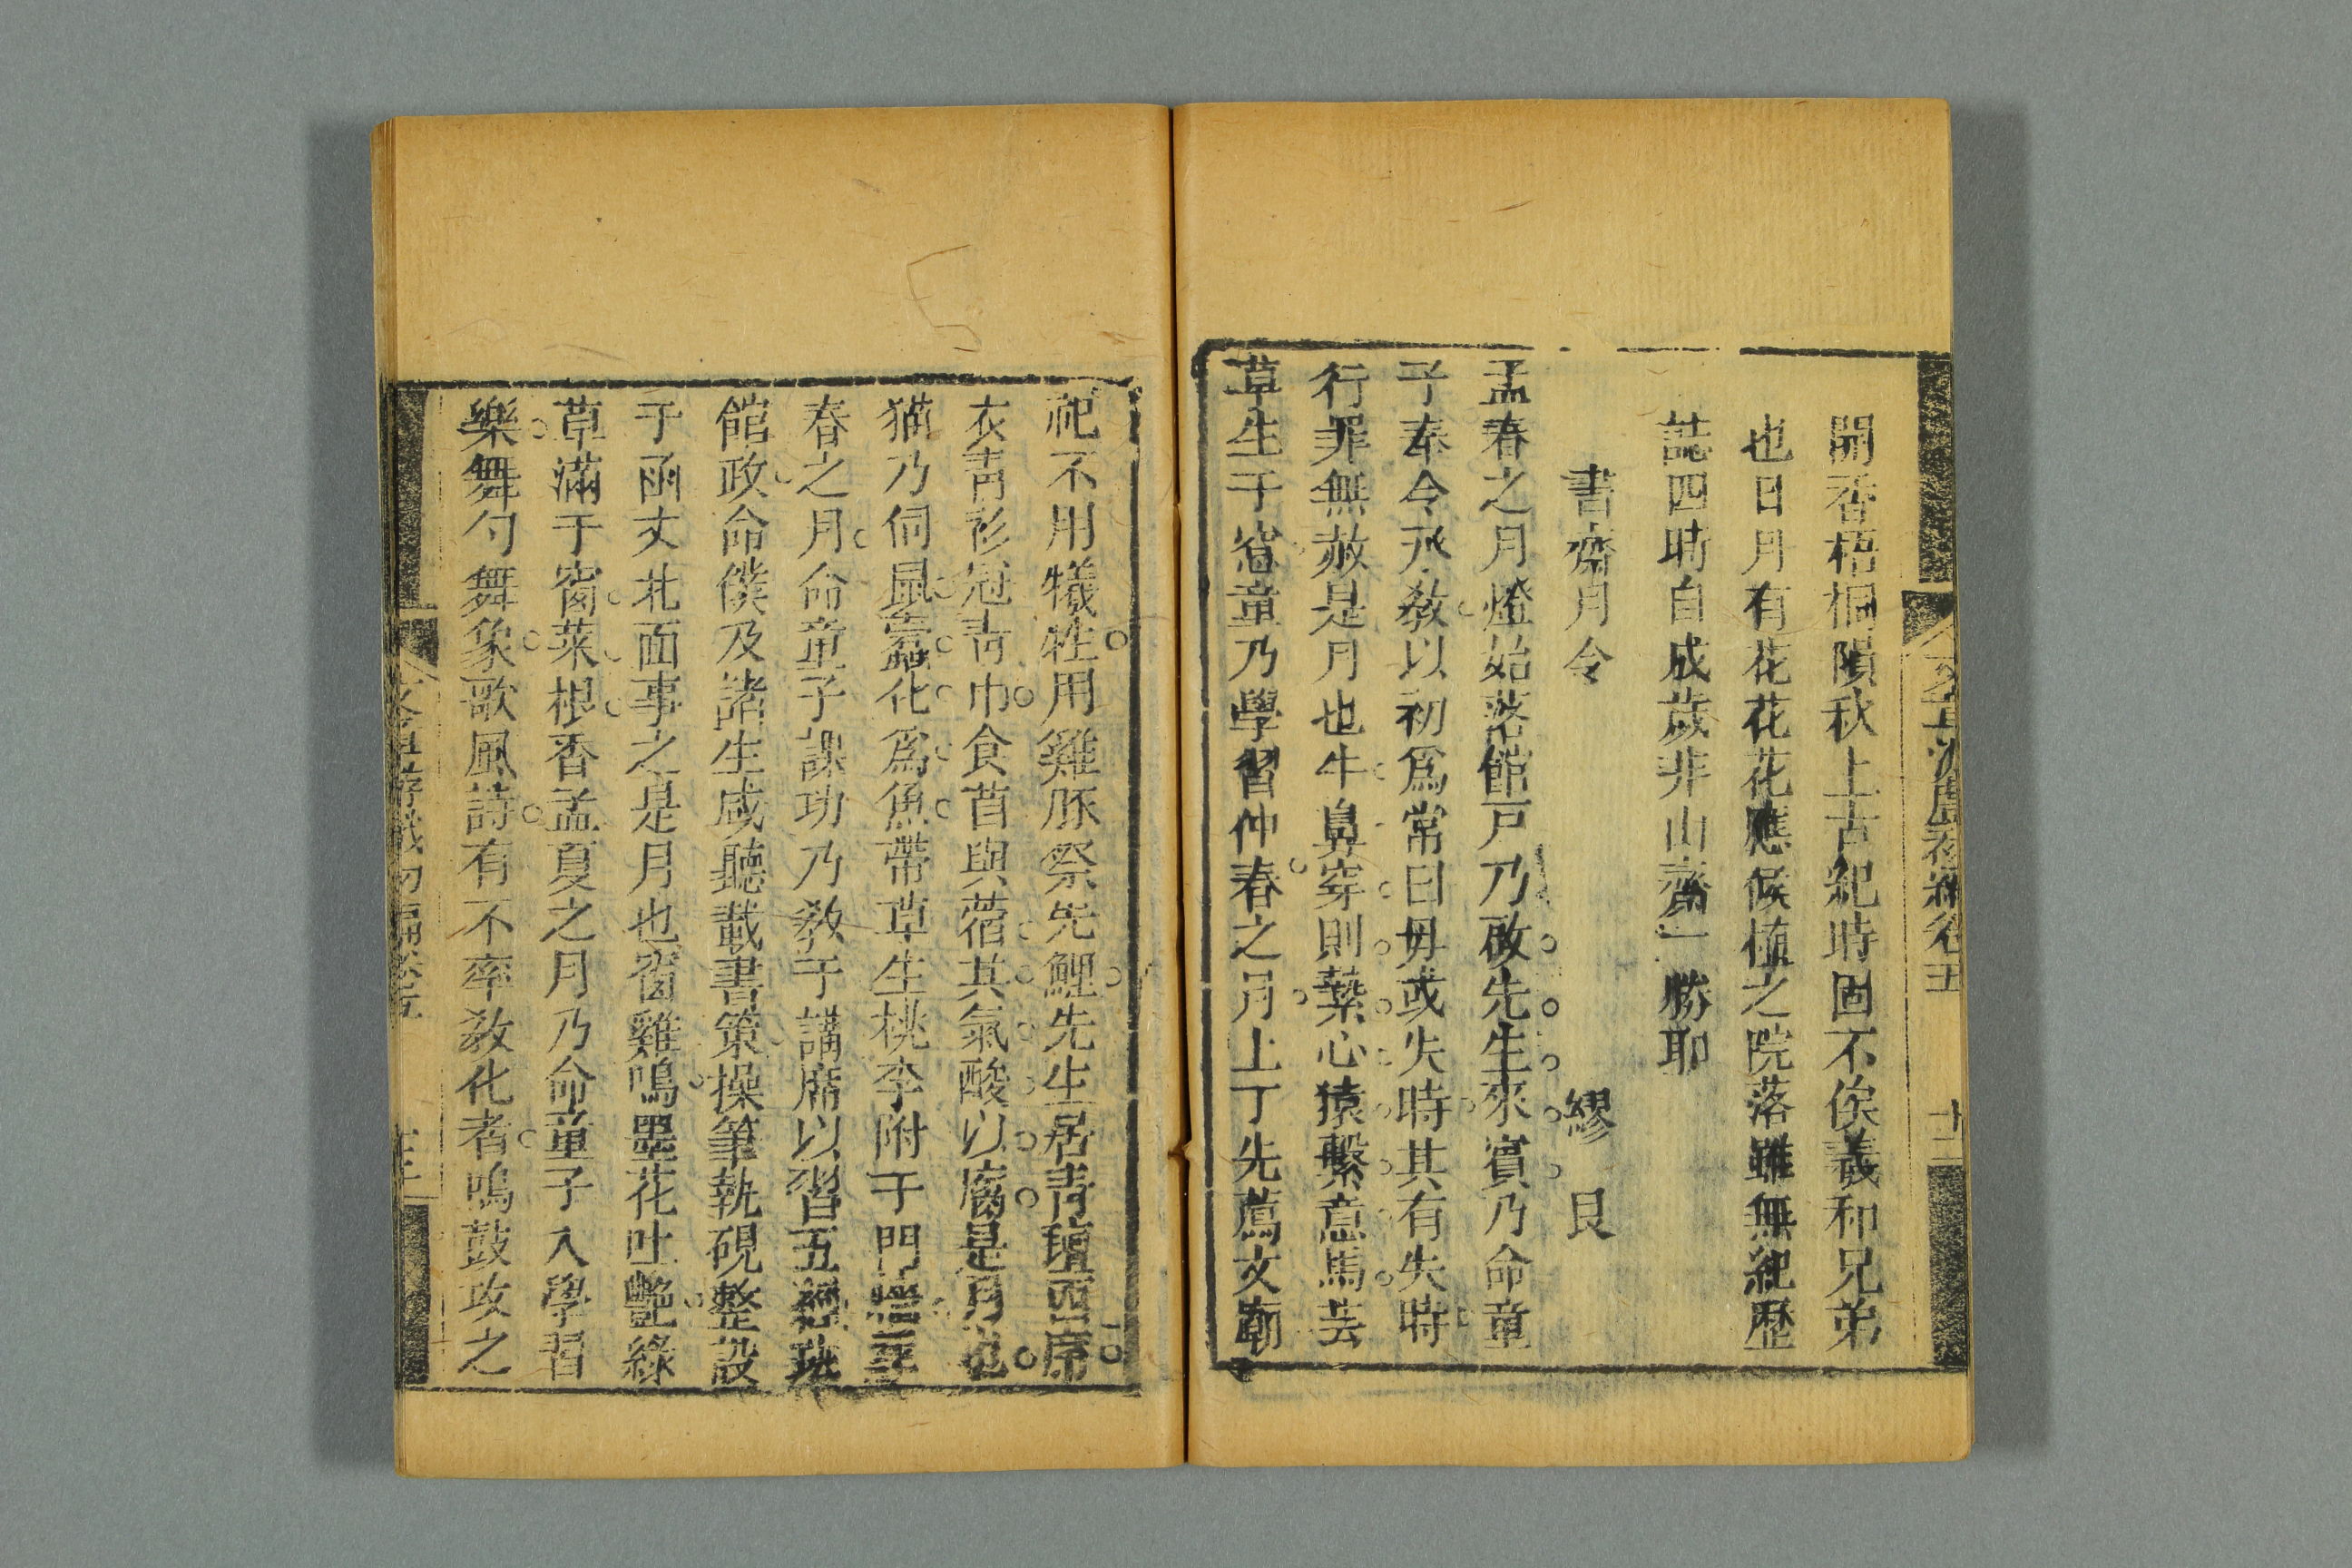 開香梧桐隕秋上古紀時固不俟羲和兄弟
也日月有花花花應候植之院落雖無紀歷
誌四時自成歲非山齋一勝耶
書齋月令 繆艮
孟春之月燈始落館戸乃啟先生來賓乃命童
子奉令承教以初爲常曰毋或失時其有失時
行罪無赦是月也牛鼻穿則縶心猿繫意馬芸
草生于窗童乃學習仲春之月上丁先薦文廟
祀不用犧牲用雞豚祭先鯉先生居青氊西席
衣青衫冠青巾食苜與蓿其氣酸以腐是月也
猫乃伺鼠蠹化爲魚帶草生桃李附于門墻季
春之月命童子課功乃教于講席以習五經珠
館政命僕及諸生咸聽載書策操筆執硯整設
于函丈北面事之是月也窗雞鳴墨花吐艷綠
草滿于窗菜根香孟夏之月乃命童子入學習
樂舞勺舞象歌風詩有不率教化者鳴鼓攻之